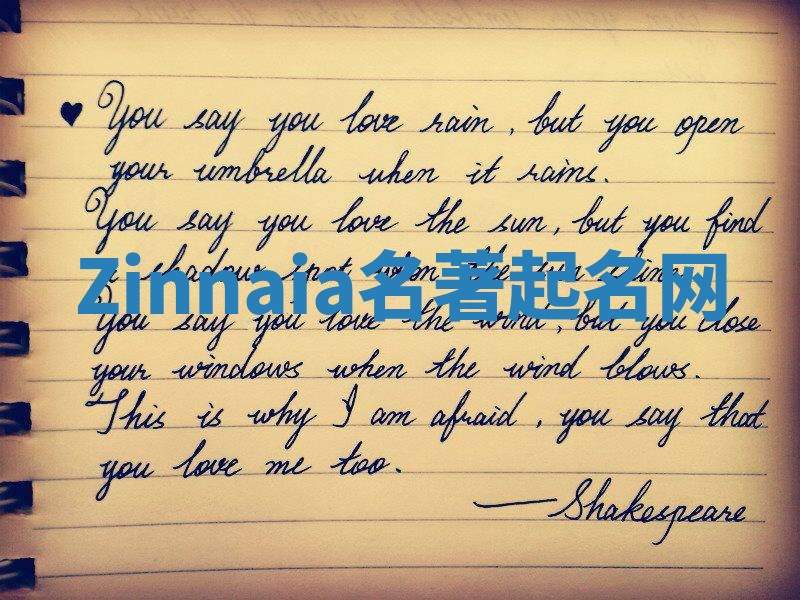 ♥ You say you love rain, but you open
your umbrella when it rains.
You say you love the sun, but you find
a shadow spot when the sun shines.
Zinnaia名著起名网
You say you love the wind, but you close
your windows when the wind blows.
This is why I am afraid, you say that
you love me too.
—Shakespeare